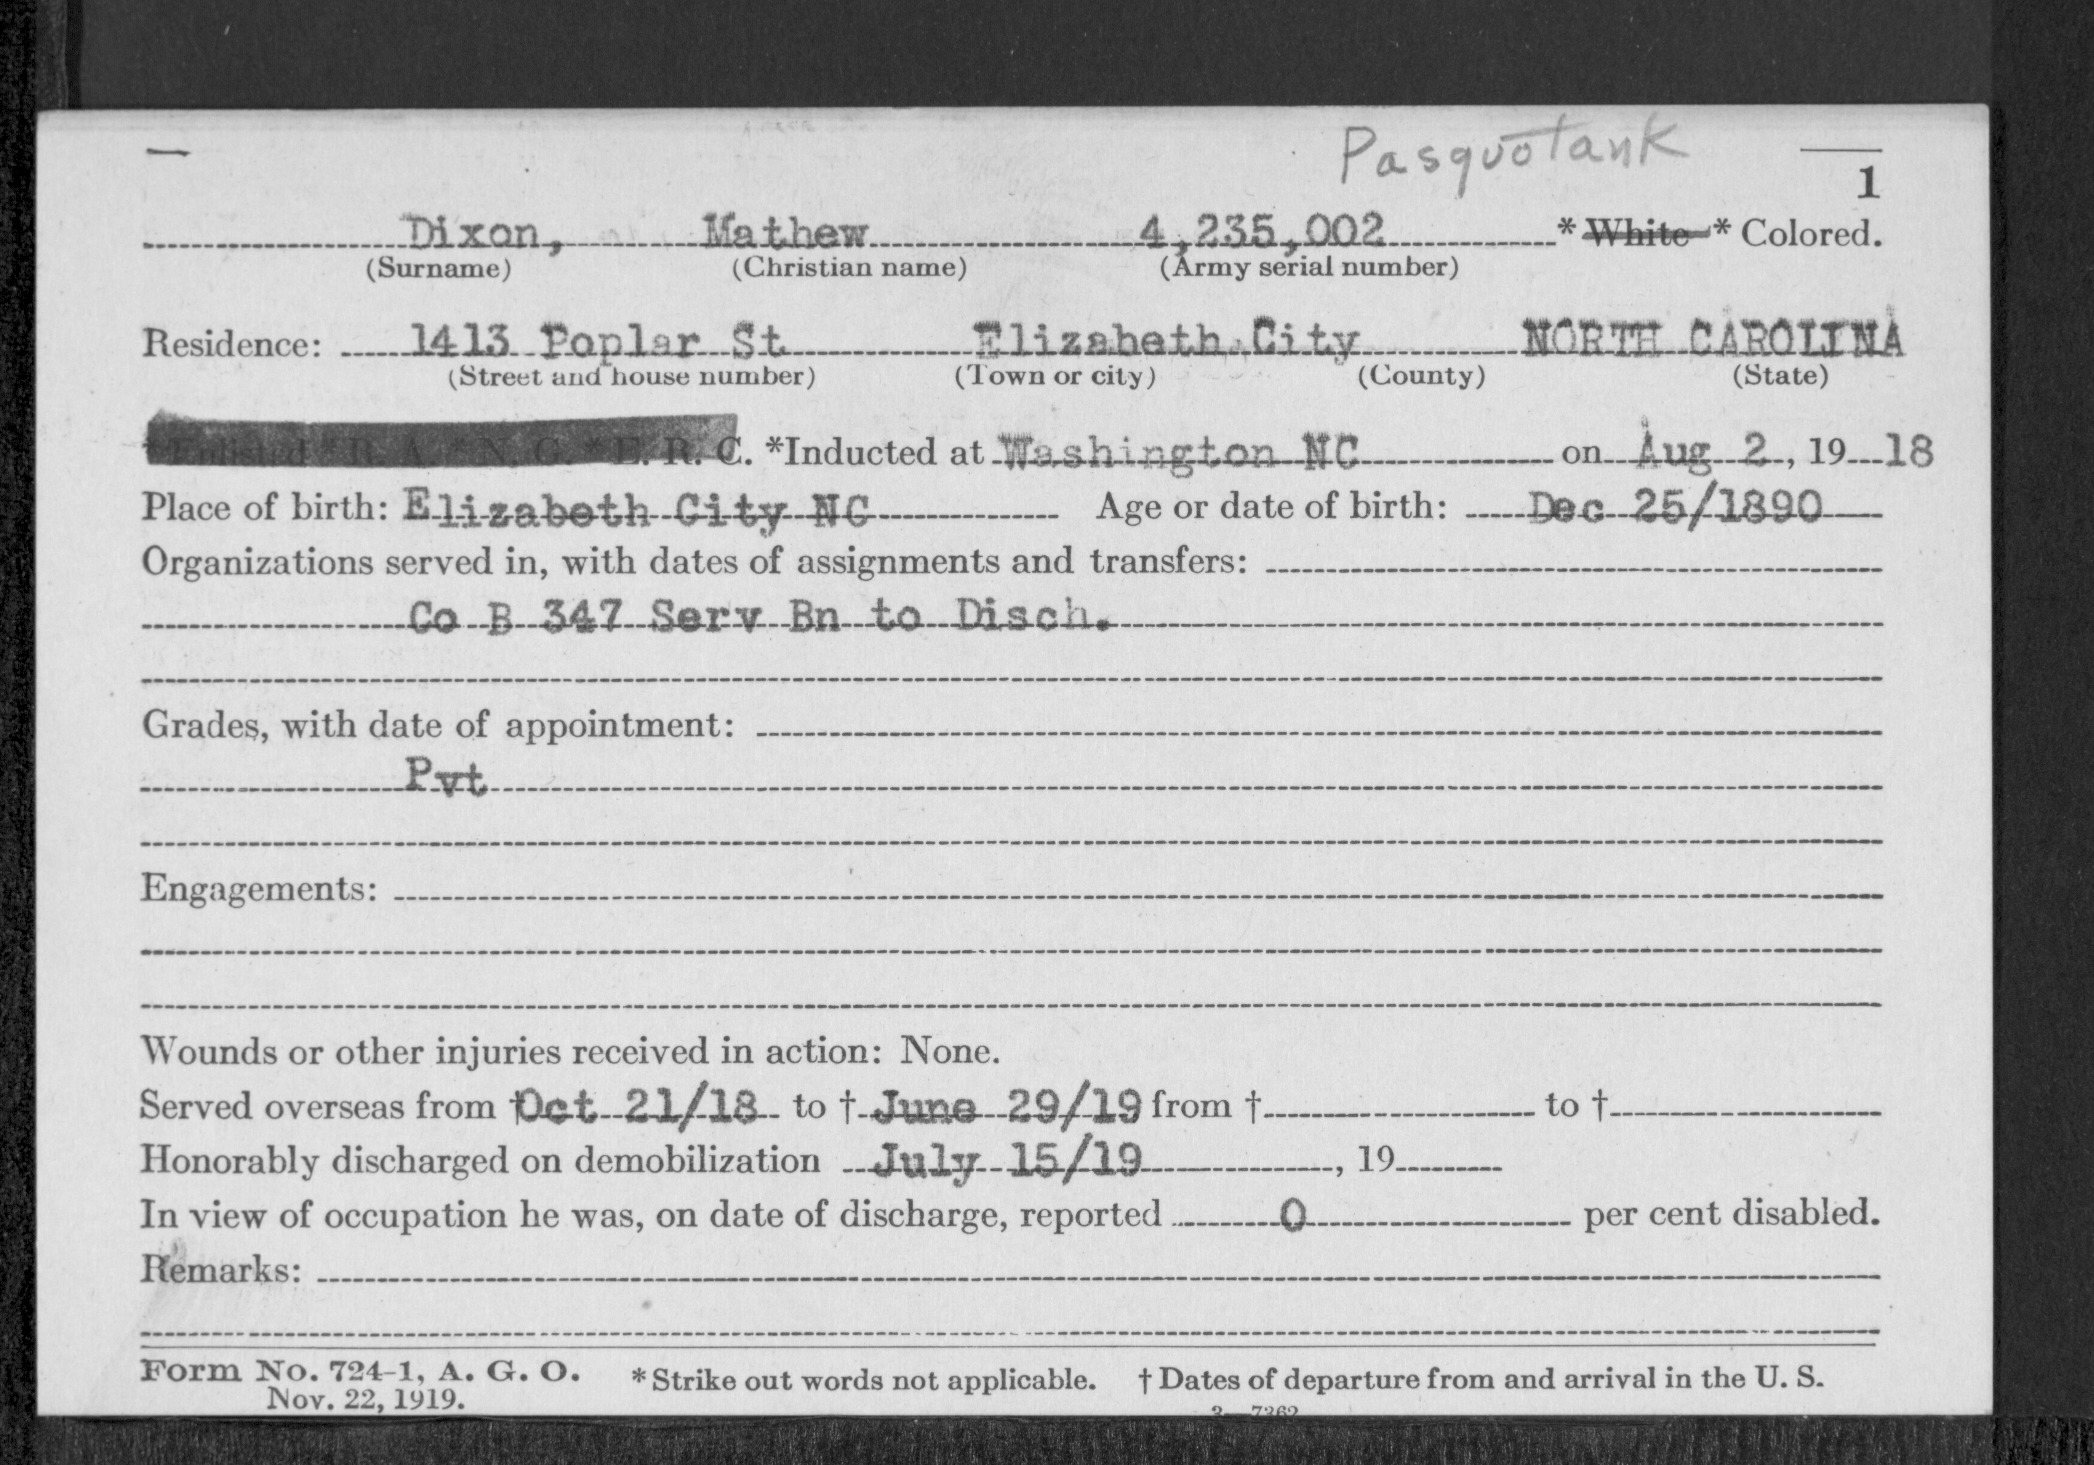 Pasquotank
1
Dixon, Mathew 4,235,002 * White * Colored.
(Surname) (Christian name) (Army serial number)
Residence: 1413 Poplar St Elizabeth City NORTH CAROLINA
(Street and house number) (Town or city) (County) (State)
* Enlisted * R. A. * N. G. * E. R. C. *Inducted at Washington NC on Aug 2, 19 18
Place of birth: Elizabeth City NC Age or date of birth: Dec 25/1890
Organizations served in, with dates of assignments and transfers:
Co B 347 Serv Bn to Disch.
Grades, with date of appointment:
Pvt
Engagements:
Wounds or other injuries received in action: None.
Served overseas from † Oct 21/18 to † June 29/19 from † to †
Honorably discharged on demobilization July 15/19, 19
In view of occupation he was, on date of discharge, reported 0 per cent disabled.
Remarks:
Form No. 724-1, A. G. O. * Strike out words not applicable. † Dates of departure from and arrival in the U. S.
Nov. 22, 1919.
3—7362